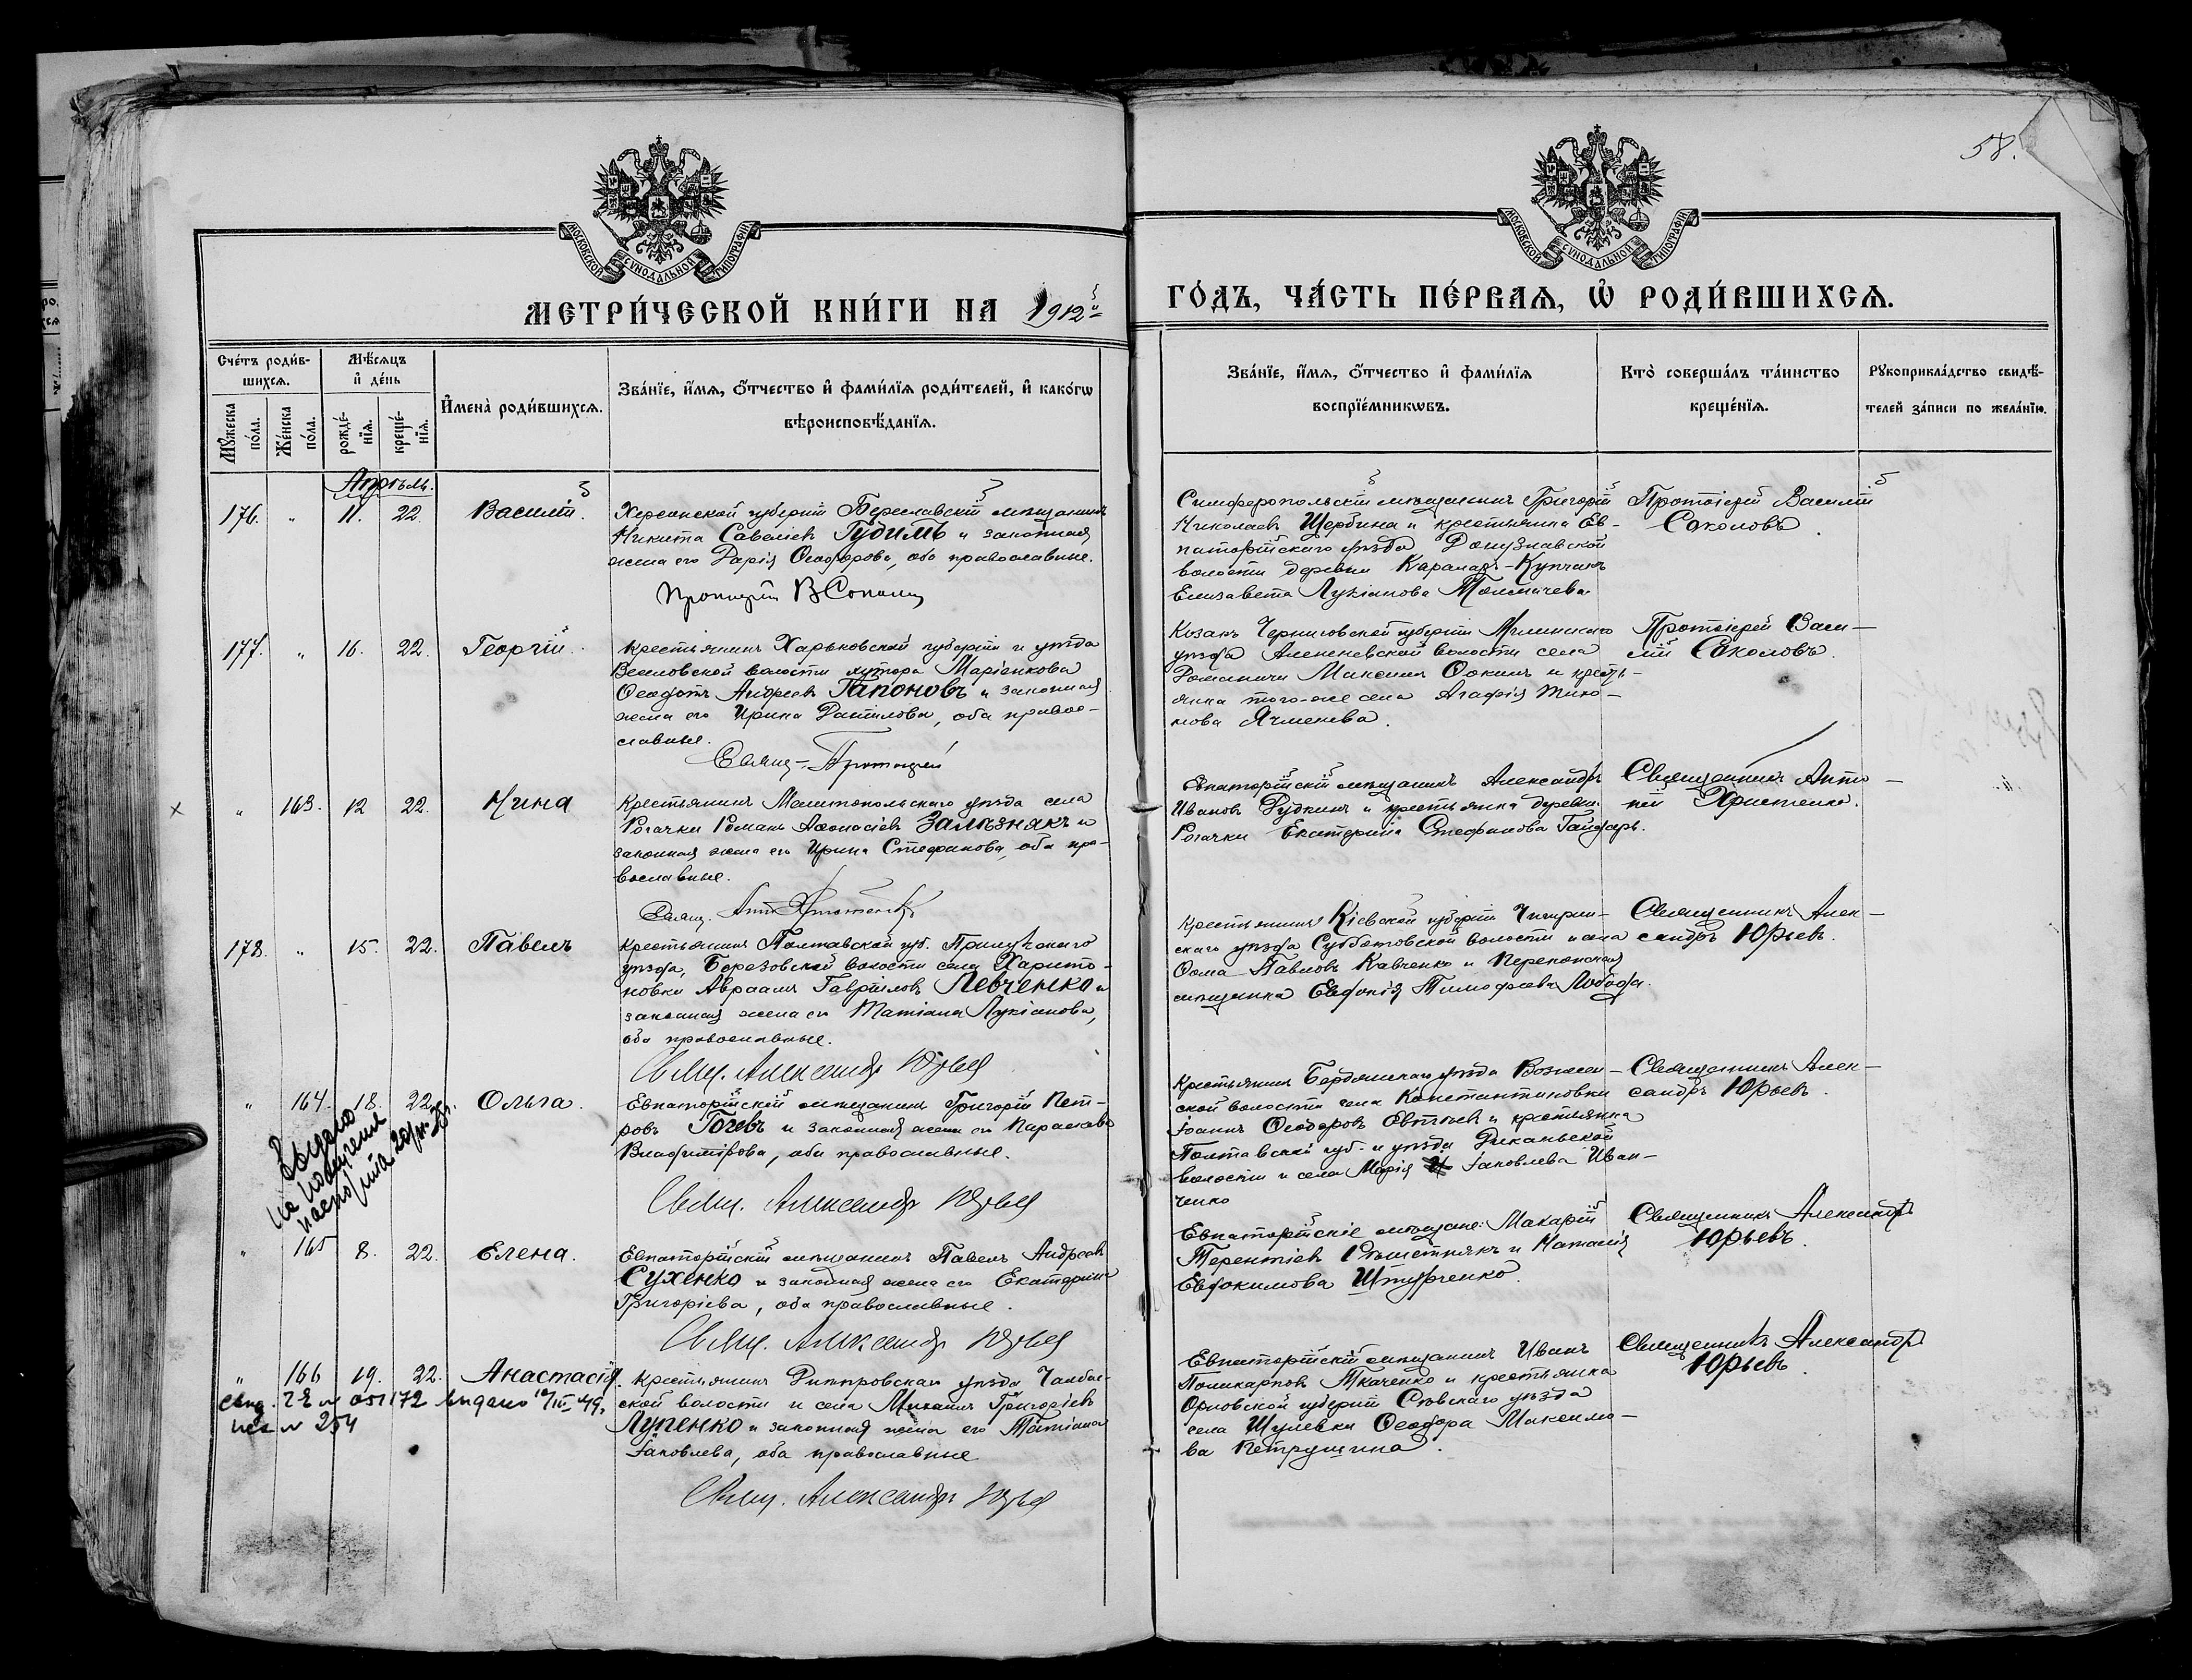 58.
МОСКОВСКОЙ СИНОДАЛЬНОЙ ТИПОГРАФІИ
МОСКОВСКОЙ СИНОДАЛЬНОЙ ТИПОГРАФІИ
МЕТРИ́ЧЕСКОЙ КНИ́ГИ НА 1912й
ГО́ДЪ, ЧА́СТЬ ПЕ́РВАѦ, Ѽ РОДИ́ВШИХСѦ.
Сче́тъ роди́в-
шихсѧ.
Мѣ́сѧцъ
и҆ де́нь
Мꙋ́жеска
по́ла.
Же́нска
по́ла.
рожде́-
нїѧ.
креще́-
нїѧ.
И҆мена̀ роди́вшихсѧ.
Зва́нїе, и҆́мѧ, ѻ҆́тчество и҆ фами́лїѧ роди́телей, и҆ како́гѡ
вѣроисповѣ́данїѧ.
Зва́нїе, и҆́мѧ, ѻ҆́тчество и҆ фами́лїѧ
воспрїе́мникѡвъ.
Кто̀ соверша́лъ та́инство
креще́нїѧ.
Рꙋкоприкла́дство свидѣ́-
телей за́писи по жела́нїю.
Апрѣль.
176. " 11. 22. Василій.
Херсонской губерніи Бериславскій мѣщанинъ
Никита Савеліевъ Гудимъ и законная
жена его Дарія Ѳеодорова, оба православные.
Протоіерей В Соколовъ
Симферопольскій мѣщанинъ Григорій
Николаевъ Щербина и крестьянка Ев-
паторійскаго уѣзда Донузлавской
волости деревни Карамав-Купчакъ
Елизавета Лукіанова Толмачева
Протоіерей Василій
Соколовъ.
177. " 16. 22. Георгій.
Крестьянинъ Харьковской губерніи и уѣзда
Веселовской волости хутора Маріенкова
Ѳеодотъ Андреевъ Гапоновъ и законная
жена его Ирина Даніилова, оба право-
славные.
Козакъ Черниговской губерніи Мглинскаго
уѣзда волости села
Романичи Максимъ и кресть-
янка того-же села Агафія Тихо-
нова Ячменева.
Протоіерей Васи-
лій Соколовъ.
" 163. 12 22. Нина
Крестьянинъ Мелитопольскаго уѣзда села
Рогачки Романъ Аѳонасіевъ Залѣзнякъ и
законная жена его Ирина Стефанова, оба пра-
вославные.
Свящ. Ант. Христенко
Евпаторійскій мѣщанинъ Александръ
Ивановъ Рудкинъ и крестьянка деревни
Рогачки Екатерина Стефанова Гайдарь.
Священникъ Анто-
ній Христенко.
178. " 15. 22. Павелъ
Крестьянинъ Полтавской губ. Прилукскаго
уѣзда, Березовской волости села Харито-
новки Авраамъ Гавріиловъ Левченко и
законная жена его Татіана Лукіанова,
оба православные.
Свящ. Александръ Юрьевъ
Крестьянинъ Кіевской губерніи Чигрин-
скаго уѣзда Субботовской волости и села
Ѳома Павловъ Кавченко и Перекопская
мѣщанка Евдокія Тимофеева Лобода.
Священникъ Алек-
сандръ Юрьевъ.
" 164. 18. 22. Ольга.
Евпаторійскій мѣщанинъ Григорій Пет-
ровъ Гочевъ и законная жена его Параскева
Владимірова, оба православные.
Свящ. Александръ Юрьевъ
Выдано
на получение
паспорта
Крестьянинъ Бердянскаго уѣзда Вознесен-
ской волости села Константиновки
Іоаннъ Ѳеодоровъ Евтѣевъ и крестьянка
Полтавской губ. и уѣзда Диканьской
волости и села Марія Іаковлева Иван-
ченко
Священникъ Алек-
сандръ Юрьевъ.
" 165 8. 22. Елена.
Евпаторійскій мѣщанинъ Павелъ Андреевъ
Сухенко и законная жена его Екатерина
Григоріева, оба православные.
Свящ. Александръ Юрьевъ
Евпаторійскіе мѣщане: Макарій
Терентіевъ Рѣшетнякъ и Наталія
Евдокимова Штурченко.
Священникъ Александръ
Юрьевъ.
" 166 19. 22. Анастасія.
Крестьянинъ Днѣпровскаго уѣзда Чалбас-
ской волости и села Михаилъ Григоріевъ
Луценко и законная жена его Татіана
Іаковлева, оба православные
Свящ. Александръ Юрьевъ
051172 выдано
254
Евпаторійскій мѣщанинъ Иванъ
Поликарповъ Ткаченко и крестьянка
Орловской губерніи Сѣвскаго уѣзда
села Шулевки Ѳеодора Максимо-
ва Петрушина.
Священникъ Александръ
Юрьевъ.